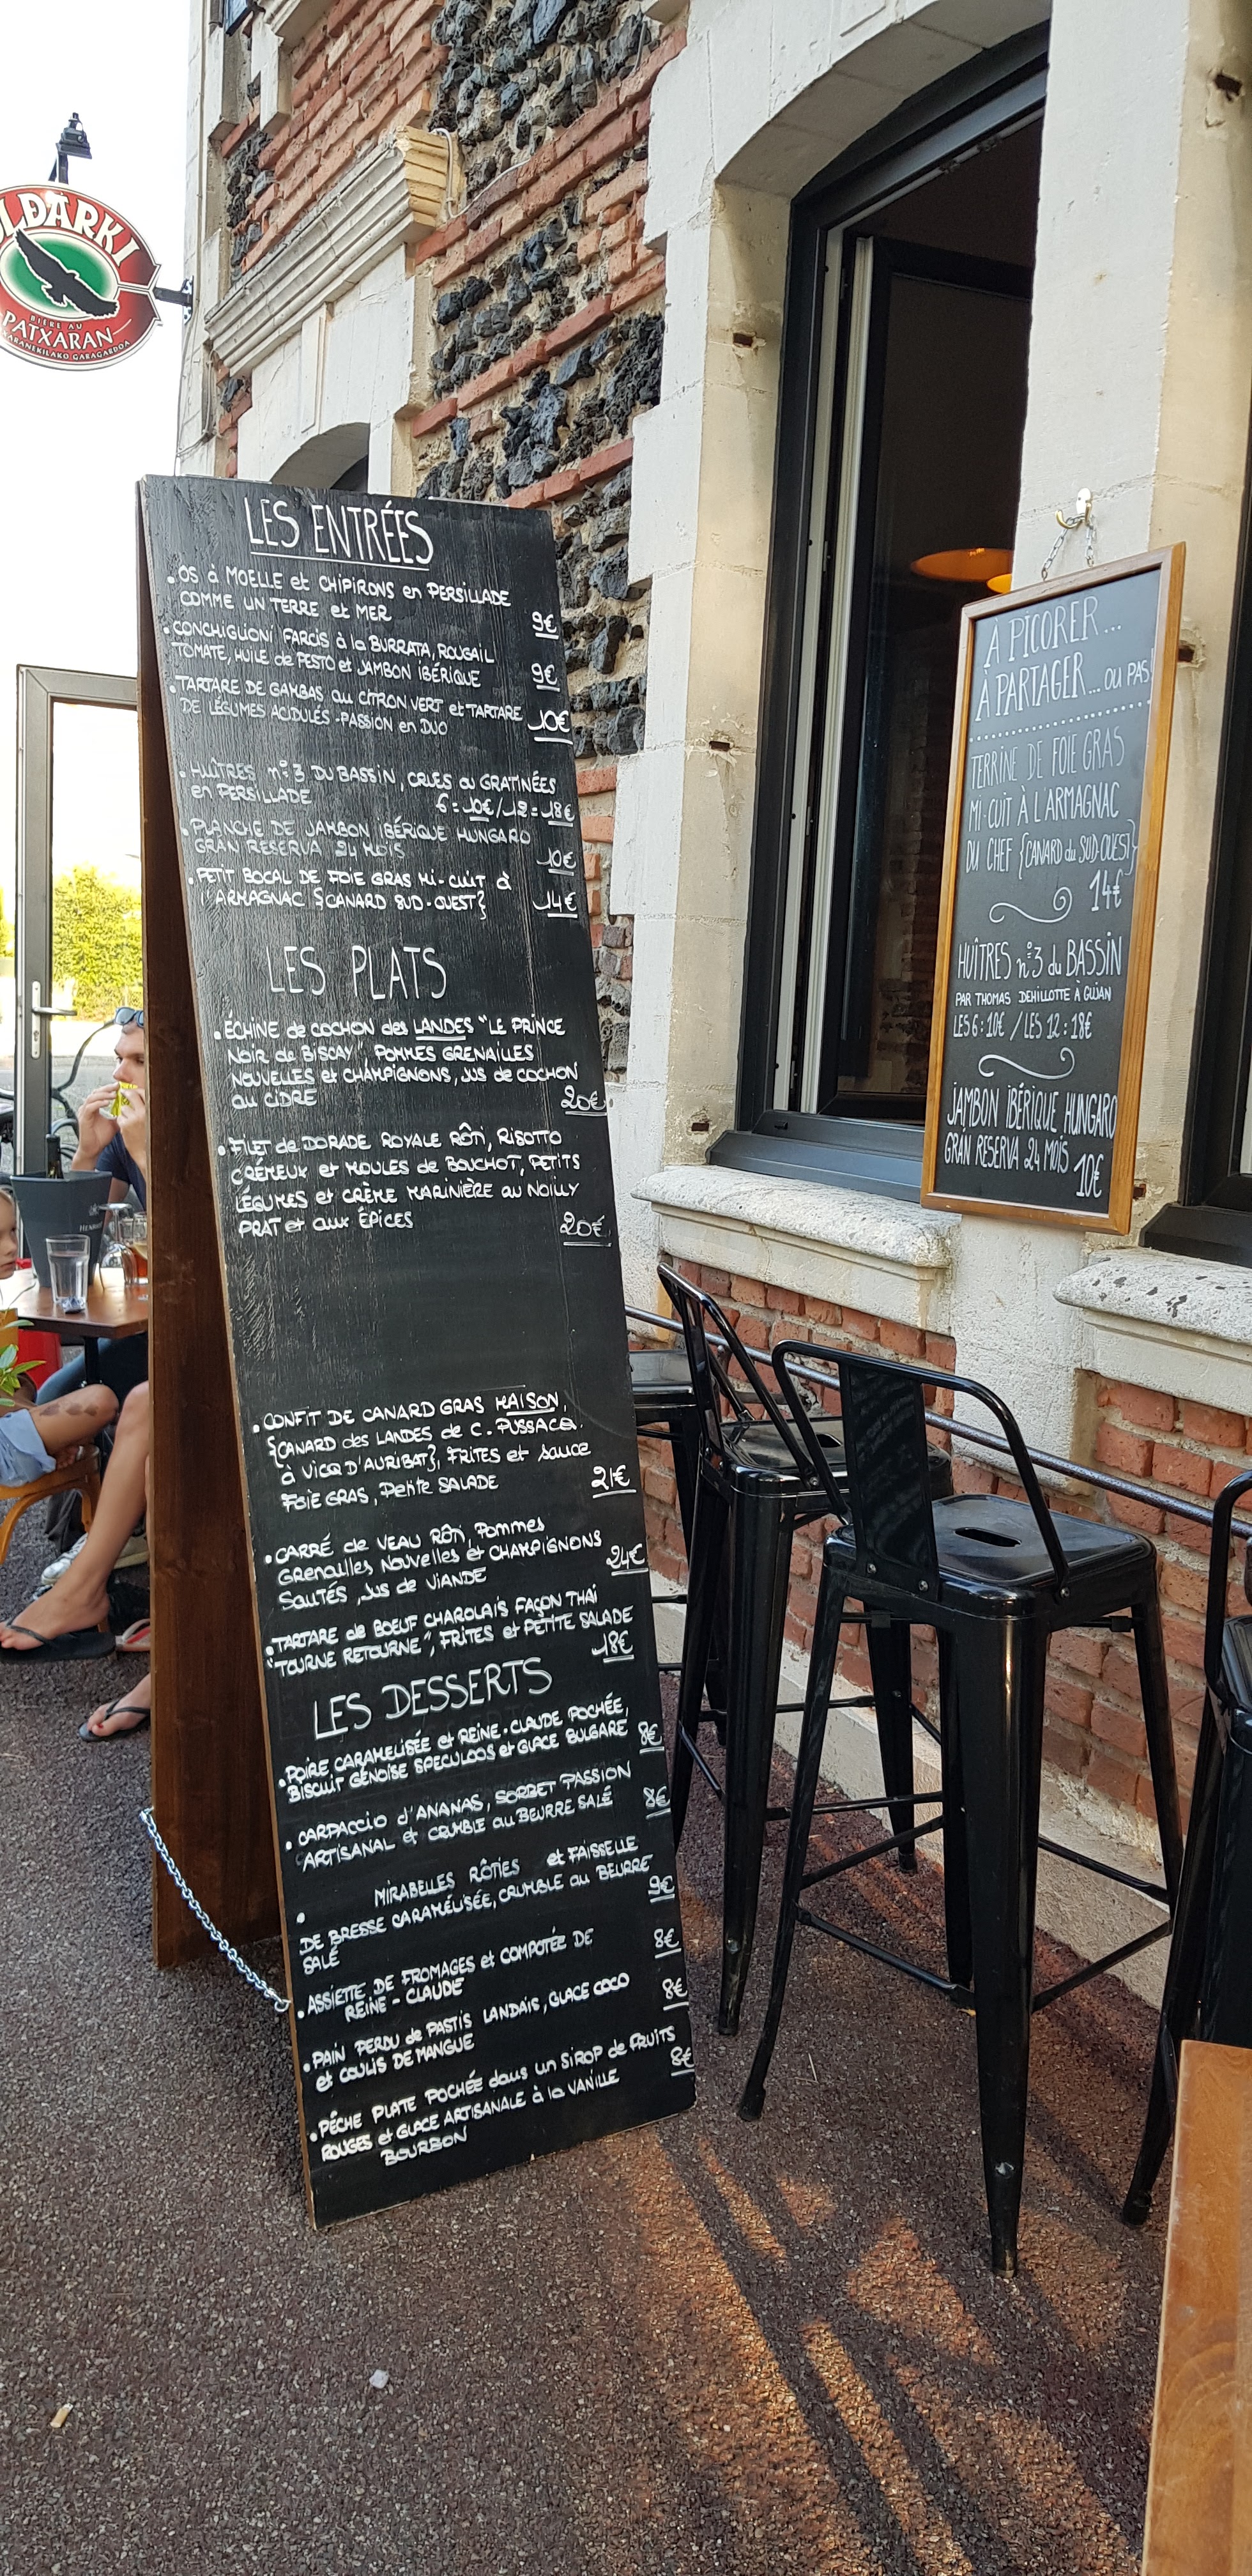 OLDARKI
BIÈRE AU
PATXARAN
GARAGARDOA
LES ENTRÉES
• OS à MOELLE et CHIPIRONS en PERSILLADE
COMME UN TERRE et MER 9€
• CONCHIGLIONI FARCIS à la BURRATA, ROUGAIL
TOMATE, HUILE de PESTO et JAMBON IBÉRIQUE 9€
• TARTARE DE GAMBAS au CITRON VERT et TARTARE
DE LÉGUMES ACIDULÉS - PASSION en DUO 10€
• HUÎTRES n°3 DU BASSIN, CRUES ou GRATINÉES
en PERSILLADE 6=10€/12=18€
• PLANCHE DE JAMBON IBÉRIQUE HUNGARO
GRAN RESERVA 24 MOIS 10€
• PETIT BOCAL DE FOIE GRAS MI-CUIT à
l'ARMAGNAC {CANARD SUD-OUEST} 14€
LES PLATS
• ÉCHINE de COCHON des LANDES "LE PRINCE
NOIR de BISCAY", POMMES GRENAILLES
NOUVELLES et CHAMPIGNONS, JUS de COCHON
au CIDRE 20€
• FILET de DORADE ROYALE RÔTI, RISOTTO
CRÉMEUX et MOULES de BOUCHOT, PETITS
LÉGUMES et CRÈME MARINIÈRE au NOILLY
PRAT et aux ÉPICES 20€
• CONFIT DE CANARD GRAS MAISON,
{CANARD des LANDES de C. PUSSACQ.
à VICQ D'AURIBAT}, FRITES et sauce
FOIE GRAS, Petite SALADE 21€
• CARRÉ de VEAU RÔTI, Pommes
Grenailles Nouvelles et CHAMPIGNONS
SAUTÉS, JUS de VIANDE 24€
• TARTARE de BOEUF CHAROLAIS FAÇON THAÏ
"TOURNE RETOURNE", FRITES et PETITE SALADE
18€
LES DESSERTS
• POIRE CARAMELISÉE et REINE-CLAUDE POCHÉE,
BISCUIT GÉNOISE SPECULOOS et GLACE BULGARE 8€
• CARPACCIO d'ANANAS, SORBET PASSION
ARTISANAL et CRUMBLE au BEURRE SALÉ 8€
• MIRABELLES RÔTIES et FAISSELLE
DE BRESSE CARAMÉLISÉE, CRUMBLE au BEURRE
SALÉ 9€
• ASSIETTE DE FROMAGES et COMPOTÉE DE
REINE-CLAUDE 8€
• PAIN PERDU de PASTIS LANDAIS, GLACE COCO
et COULIS DE MANGUE 8€
• PÊCHE PLATE POCHÉE dans un SIROP de FRUITS
ROUGES et GLACE ARTISANALE à la VANILLE
BOURBON 8€
À PICORER...
À PARTAGER... OU PAS!
TERRINE DE FOIE GRAS
MI-CUIT À L'ARMAGNAC
DU CHEF {CANARD du SUD-OUEST}
14€
HUÎTRES n°3 du BASSIN
PAR THOMAS DEHILLOTTE À GUJAN
LES 6 : 10€ / LES 12 : 18€
JAMBON IBÉRIQUE HUNGARO
GRAN RESERVA 24 MOIS 10€